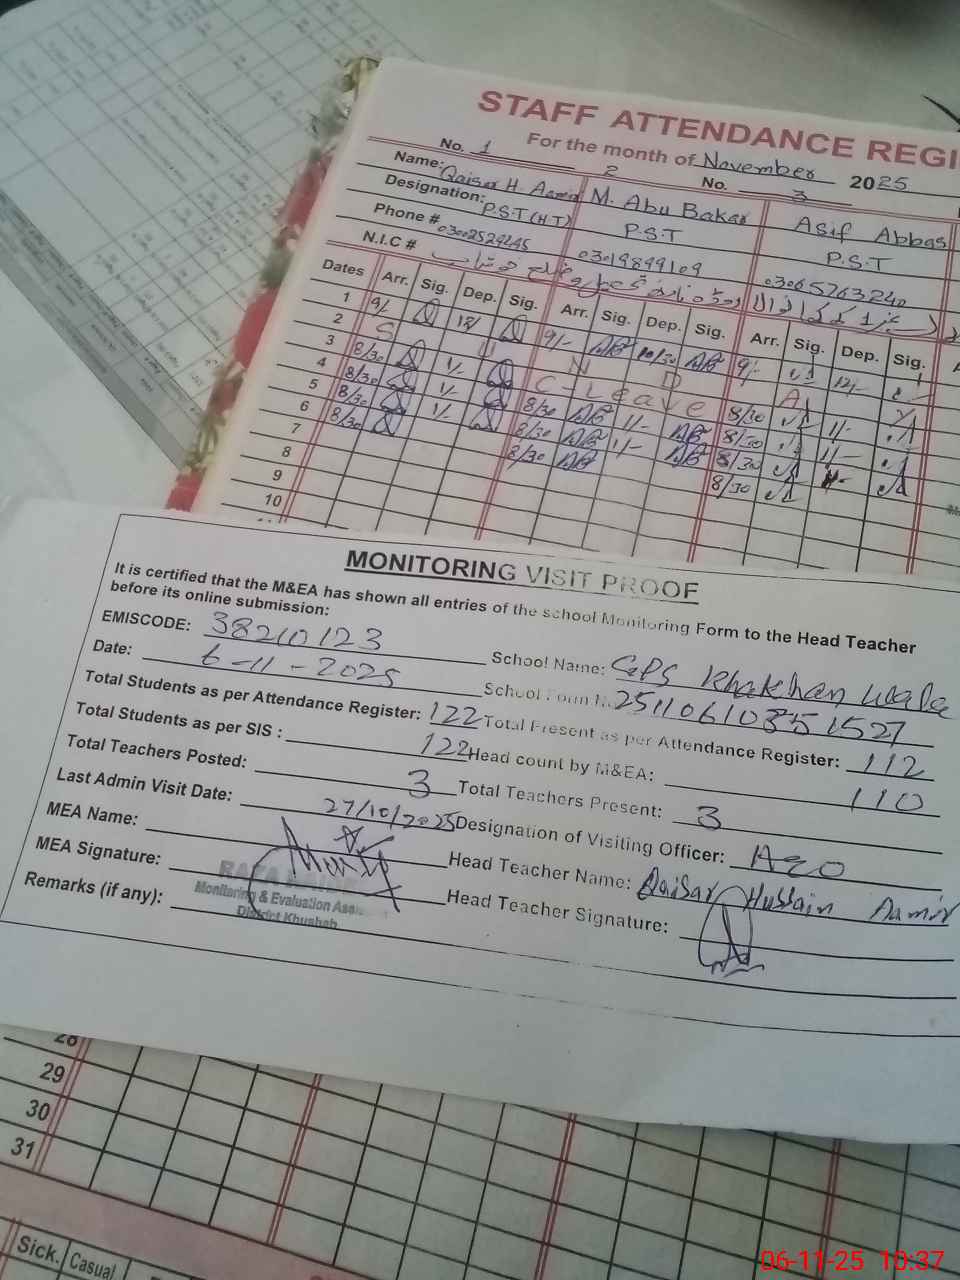 STAFF ATTENDANCE REGI
For the month of November 2025
No. 1 2 No. 3
Name: Qaisar H. Aamir M. Abu Bakar Asif Abbas
Designation: P.S.T (H.T) P.S.T P.S.T
Phone # 03002529245 03019899109 03065763240
N.I.C #
Dates Arr. Sig. Dep. Sig. Arr. Sig. Dep. Sig. Arr. Sig. Dep. Sig.
1 9/- 12/ 9/- AB 10/30 AB 9/- 12/-
2 S U N D A Y
3 8/30 1/- C-Leave 8/30 1/-
4 8/30 1/- 8/30 AB 1/- AB 8/30 1/-
5 8/30 1/- 8/30 AB 1/- AB 8/30 1/-
6 8/30 8/30 AB 8/30
7
8
9
10
MONITORING VISIT PROOF
It is certified that the M&EA has shown all entries of the school Monitoring Form to the Head Teacher
before its online submission:
EMISCODE: 38210123 School Name: GPS Khakhan wala
Date: 6-11-2025 School Form N
Total Students as per Attendance Register: 122 Total Present as per Attendance Register: 112
Total Students as per SIS : 122 Head count by M&EA: 110
Total Teachers Posted: 3 Total Teachers Present: 3
Last Admin Visit Date: 27/10/2025 Designation of Visiting Officer: AEO
MEA Name: Head Teacher Name: Qaisar Hussain Aamir
MEA Signature: Head Teacher Signature:
Remarks (if any):
RAZA
Monitoring & Evaluation Assis
District Khushab
28
29
30
31
Sick. Casual
06-11-25 10:37